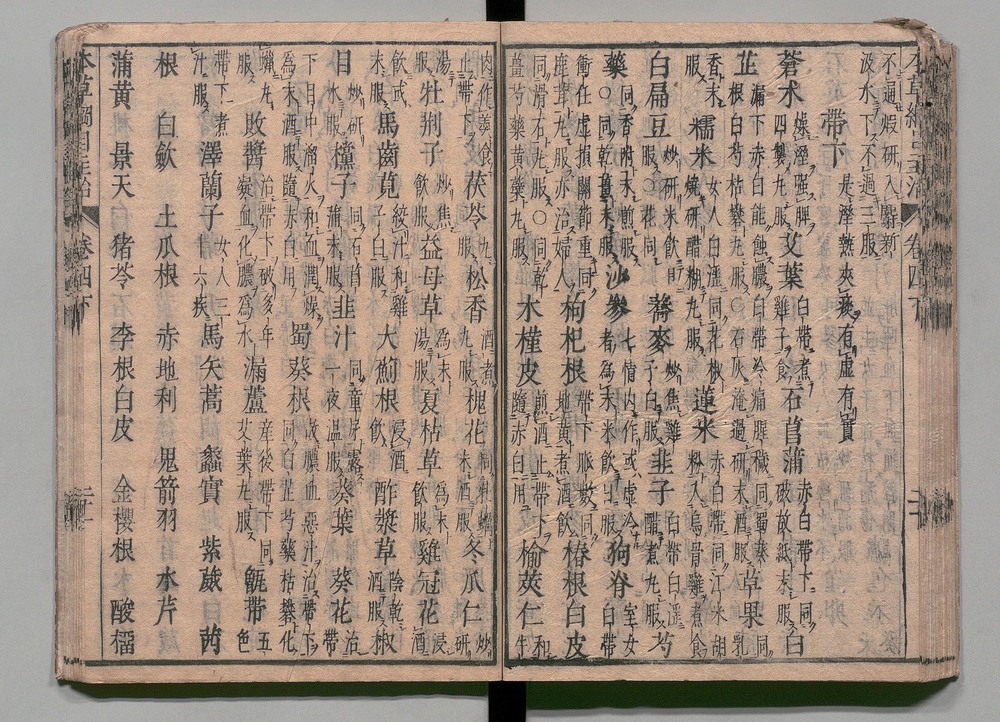 本草綱目主治 卷四下
不過煅研入麝新汲水下不過三服
帶下 是濕熱夾痰有虛有實
蒼朮 燥濕強脾四製丸服 艾葉 白帶煮雞子食 石菖蒲 赤白帶下同破故紙末服 白
芷 漏下赤白能蝕膿白帶冷痛腥穢同蜀葵根白芍枯礬丸服〇石灰淹過研末酒服 草果 同乳
香末服 糯米 女人白淫同花椒燒研醋糊丸服 蓮米 赤白帶同江米胡粉入烏骨雞煮食
白扁豆 炒研米飲日服〇花同 蕎麥 炒焦雞子白服 韭子 白帶白淫醋煮丸服 芍
藥 同香附末煎服〇同乾薑末服 沙參 七情內作或虛冷者為末米飲服 狗脊 室女白帶
衝任虛損關節重同鹿茸丸服亦治婦人 枸杞根 帶下脈數同地黃煮酒飲 椿根白皮
同滑石丸服〇同乾薑芍藥黃蘗丸服 木槿皮 煎酒止帶下隨赤白用 榆莢仁 和牛
肉作羹食止帶下 茯苓 丸服 松香 酒煮丸服 槐花 同牡蠣末酒服 冬瓜仁 炒研
湯服 牡荆子 炒焦飲服 益母草 為末湯服 夏枯草 為末飲服 雞冠花 浸酒
飲或末服 馬齒莧 絞汁和雞子白服 大薊根 浸酒飲 酢漿草 陰乾酒服 椒
目 炒研水服 櫟子 韭汁 同童尿露一夜溫服 葵葉 葵花 治帶
下目中溜火和血潤燥為末酒服隨赤白用 蜀葵根 散膿血惡汁治帶下同白芷芍藥枯礬化
蠟丸服 敗醬 治帶下破多年凝血化膿為水 漏蘆 產後帶下同艾葉丸服 甑帶 五色
帶下煮汁服 澤蘭子 女人三十六疾 馬矢蒿 蠡實 紫葳 茜
根 白歛 土瓜根 赤地利 鬼箭羽 水芹
蒲黃 景天 猪苓 李根白皮 金櫻根 酸榴
本草綱目主治 卷四下 二十一